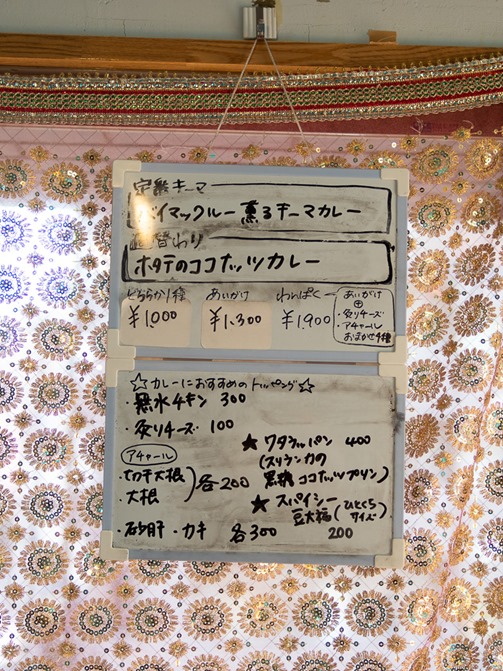 定番キーマ
バイマックルー薫るキーマカレー
日替わり
ホタテのココナッツカレー
どちらか1種
¥1,000
あいがけ
¥1,300
わんぱく
¥1,900
あいがけ
⊕
・炙りチーズ
・アチャール
おまかせ1種
☆カレーにおすすめのトッピング☆
・無水チキン 300
・炙りチーズ 100
アチャール
・切干大根
・大根
各200
・砂肝 ・カキ 各300
★ ワタラッパン 400
(スリランカの
黒糖ココナッツプリン)
★ スパイシー
豆大福(ひとくちサイズ)
200